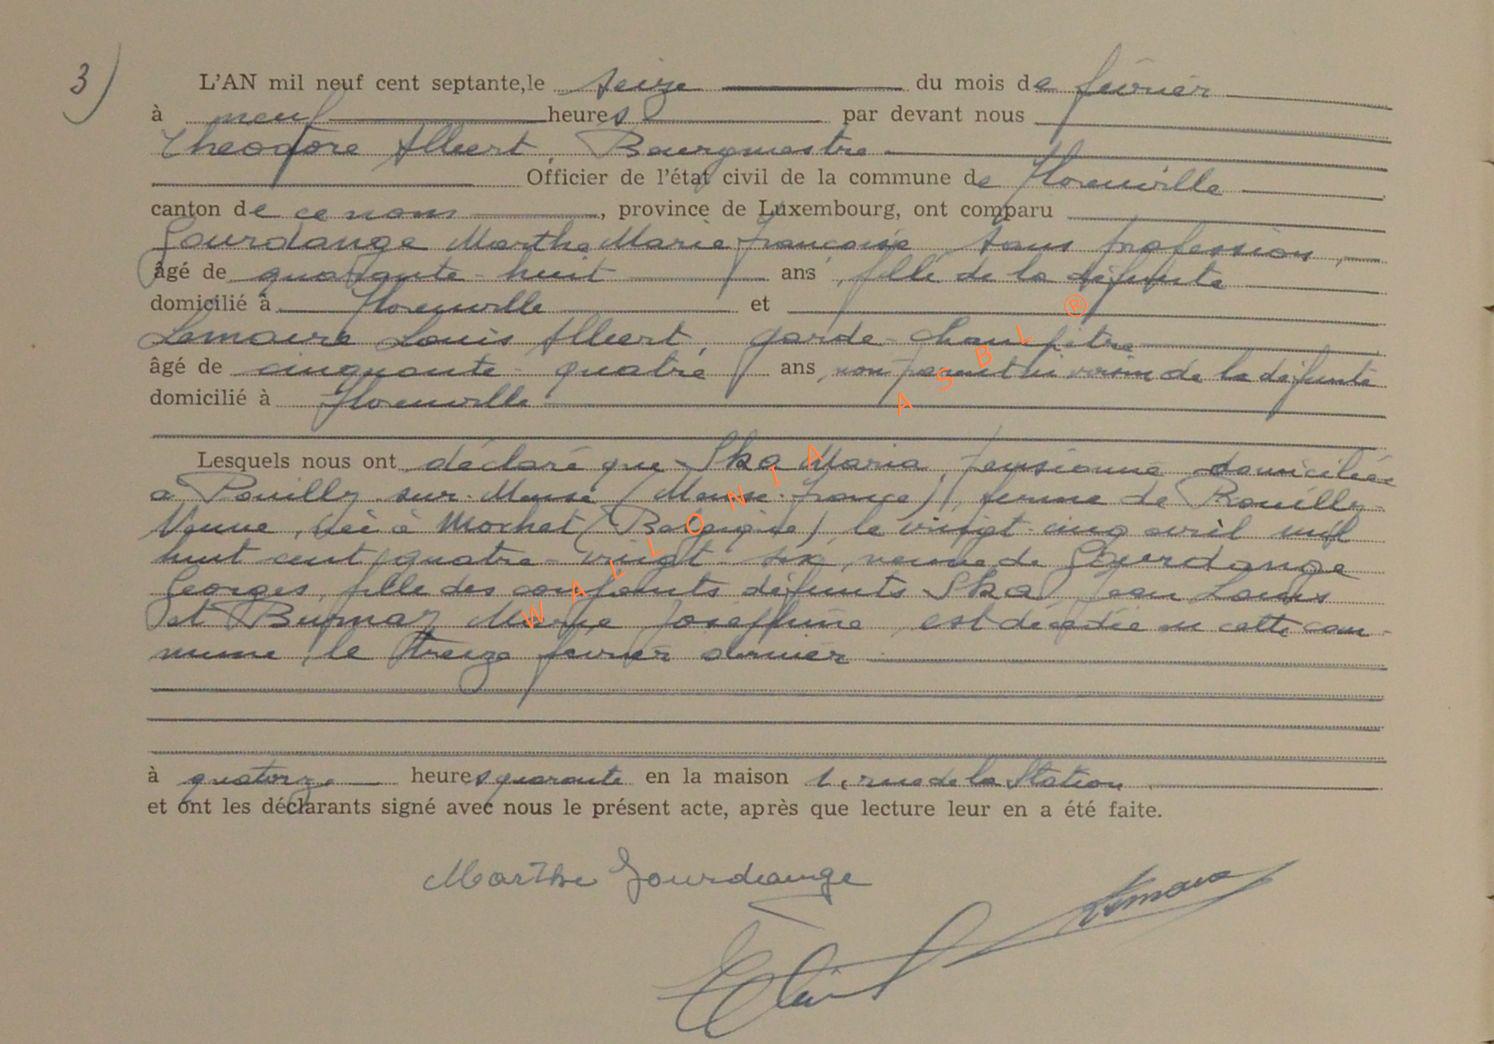 3)
L'AN mil neuf cent septante, le seize du mois de février
à neuf heures par devant nous
Théodore Albert, Bourgmestre
Officier de l'état civil de la commune de Florenville
canton de ce nom, province de Luxembourg, ont comparu
Gourdange Marthe Marie Françoise, sans profession,
âgé de quarante-huit ans, fille de la défunte
domicilié à Florenville et
Lemaire Louis Albert, garde-champêtre
âgé de cinquante-quatre ans, non parent ni voisin de la défunte
domicilié à Florenville
Lesquels nous ont déclaré que Ska Maria, pensionné domiciliée
a Pouilly-sur-Meuse (Meuse-France), ferme de
née à Moxhet (Belgique) le vingt-cinq avril mil
huit cent quatre-vingt-six, veuve de Gourdange
Georges, fille des conjoints défunts Ska Jean Louis
et Burnay Marie Joséphine est décédée en cette com-
mune, le treize février dernier
à quatorze heures quarante en la maison 1, rue de la Station
et ont les déclarants signé avec nous le présent acte, après que lecture leur en a été faite.
Marthe Gourdange
Lemaire
WALLONIA ASBL ®